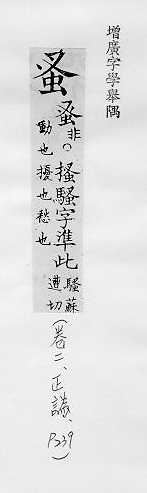 增廣字學舉隅
蚤
蚤非。搔騷字準此騷蘇遭切
動也擾也愁也
(卷二、正譌、P239)